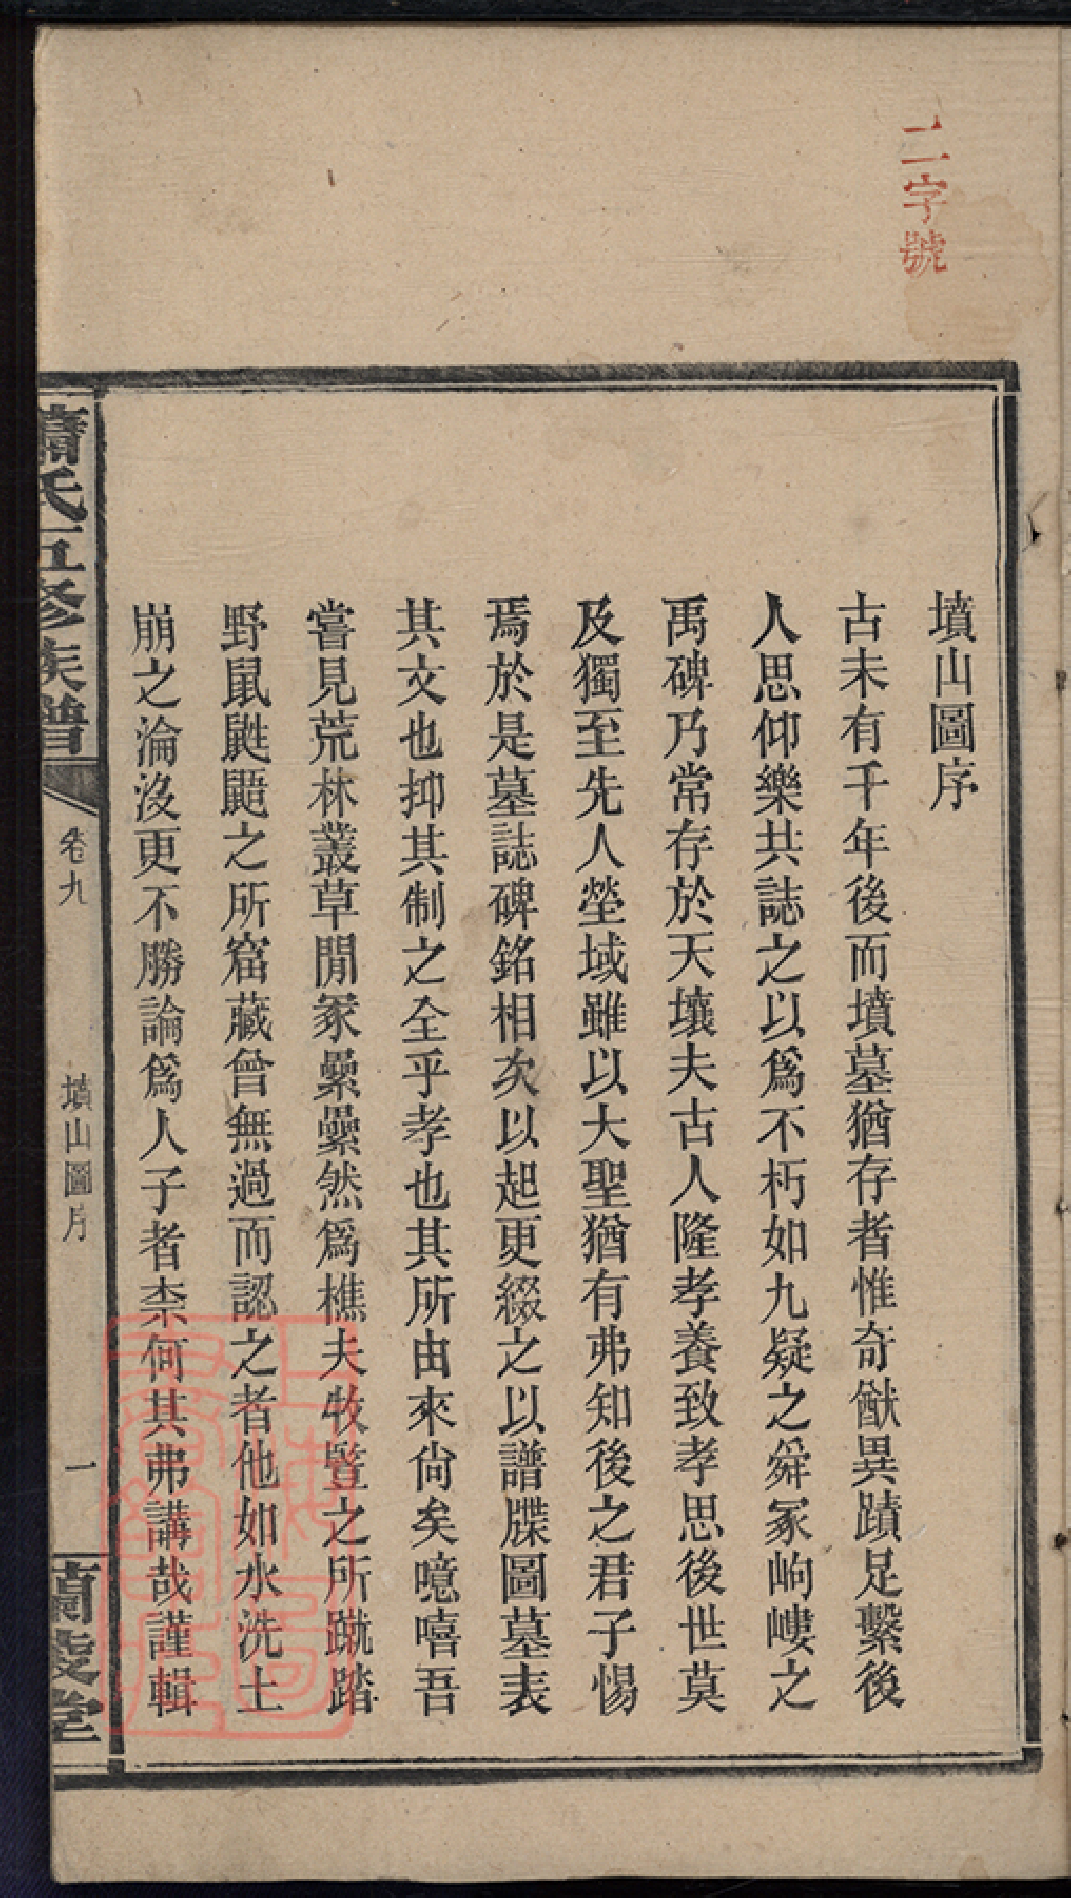 二字號
墳山圖序
古未有千年後而墳墓猶存者惟奇猷異蹟足繫後
人思仰樂共誌之以爲不朽如九疑之舜冢岣嶁之
禹碑乃常存於天壤夫古人隆孝養致孝思後世莫
及獨至先人塋域雖以大聖猶有弗知後之君子惕
焉於是墓誌碑銘相矣以起更綴之以譜牒圖墓表
其文也抑其制之全乎孝也其所由來尙矣噫嘻吾
嘗見荒林叢草閒冢纍纍然爲樵夫牧豎之所蹴踏
野鼠鼪鼯之所窟藏曾無過而認之者他如水洗土
崩之淪没更不勝論爲人子者柰何其弗講哉謹輯
蕭氏五修族譜
卷九
墳山圖
一
蘭陵堂